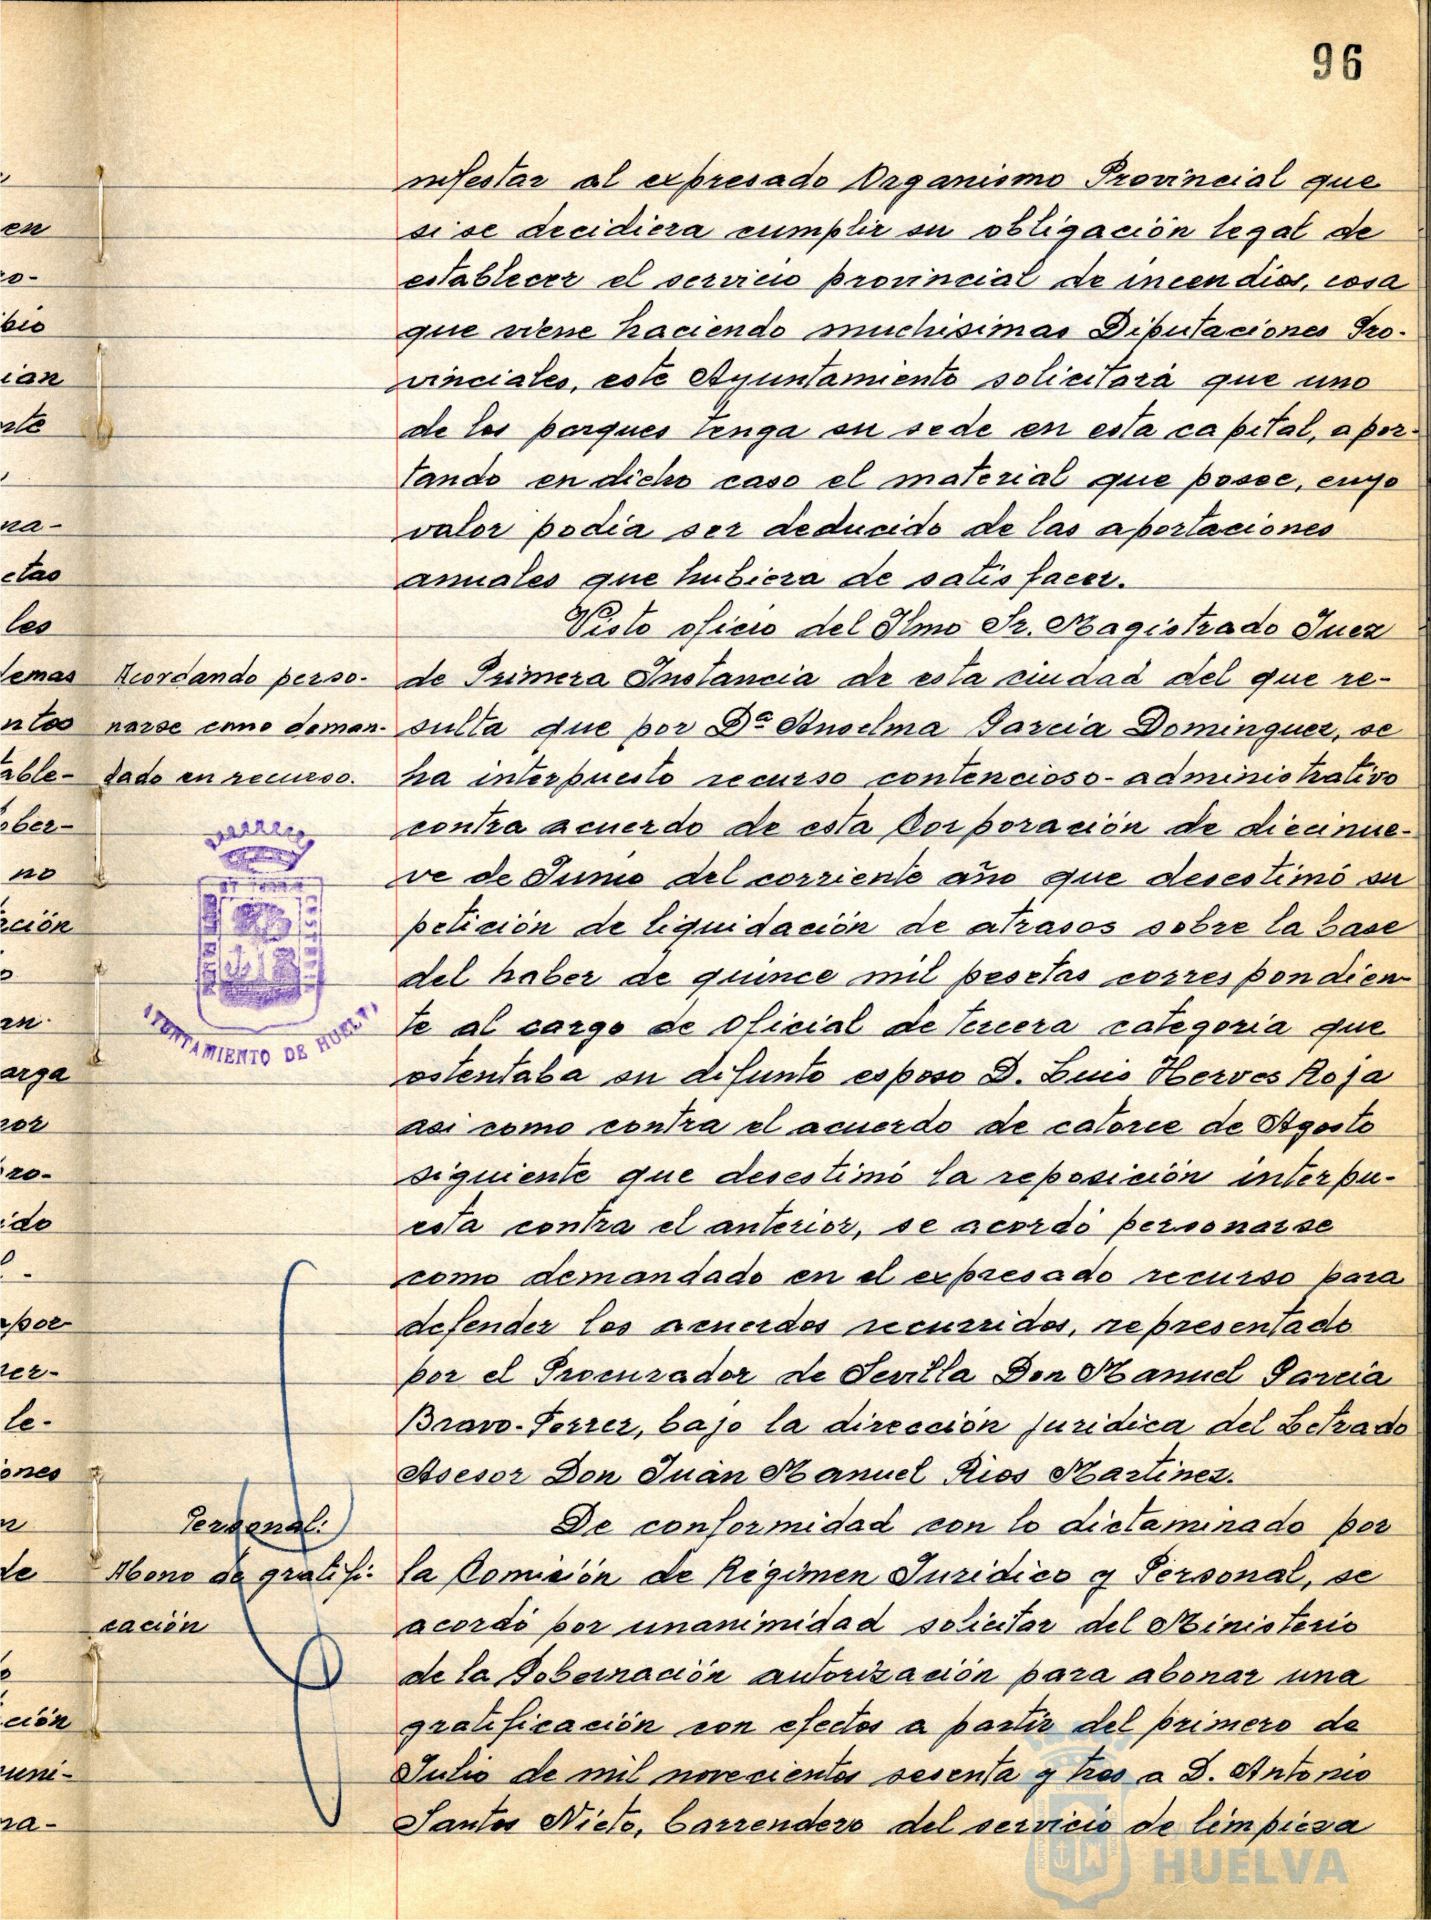 96
nifestar al expresado Organismo Provincial que
si se decidiera cumplir su obligación legal de
establecer el servicio provincial de incendios, cosa
que viene haciendo muchisimas Diputaciones Pro-
vinciales, este Ayuntamiento solicitará que uno
de los parques tenga su sede en esta capital, apor-
tando en dicho caso el material que posee, cuyo
valor podía ser deducido de las aportaciones
anuales que hubiera de satisfacer.
Visto oficio del Ilmo Sr. Magistrado Juez
de Primera Instancia de esta ciudad del que re-
sulta que por Dª Anselma Garcia Dominguez, se
ha interpuesto recurso contencioso-administrativo
contra acuerdo de esta Corporación de diecinue-
ve de Junio del corriente año que desestimó su
petición de liquidación de atrasos sobre la base
del haber de quince mil pesetas correspondien-
te al cargo de Oficial de tercera categoria que
ostentaba su difunto esposo D. Luis Herves Roja
asi como contra el acuerdo de catorce de Agosto
siguiente que desestimó la reposición interpu-
esta contra el anterior, se acordó personarse
como demandado en el expresado recurso para
defender los acuerdos recurridos, representado
por el Procurador de Sevilla Don Manuel Garcia
Bravo-Ferrer, bajo la dirección juridica del Letrado
Asesor Don Juan Manuel Rios Martinez.
De conformidad con lo dictaminado por
la Comisión de Régimen Juridico y Personal, se
acordó por unanimidad solicitar del Ministerio
de la Gobernación autorización para abonar una
gratificación con efectos a partir del primero de
Julio de mil novecientos sesenta y tres a D. Antonio
Santos Nieto, barrendero del servicio de limpieza
Acordando perso-
narse como deman-
dado en recurso.
AYUNTAMIENTO DE HUELVA
Personal:
Abono de gratifi-
cación
en
co-
bio
ian
rte
na-
ctas
les
demas
ntos
table-
ober-
no
ación
an
arga
por
pro-
ido
por-
per-
le-
ones
de
ción
uni-
na-
HUELVA